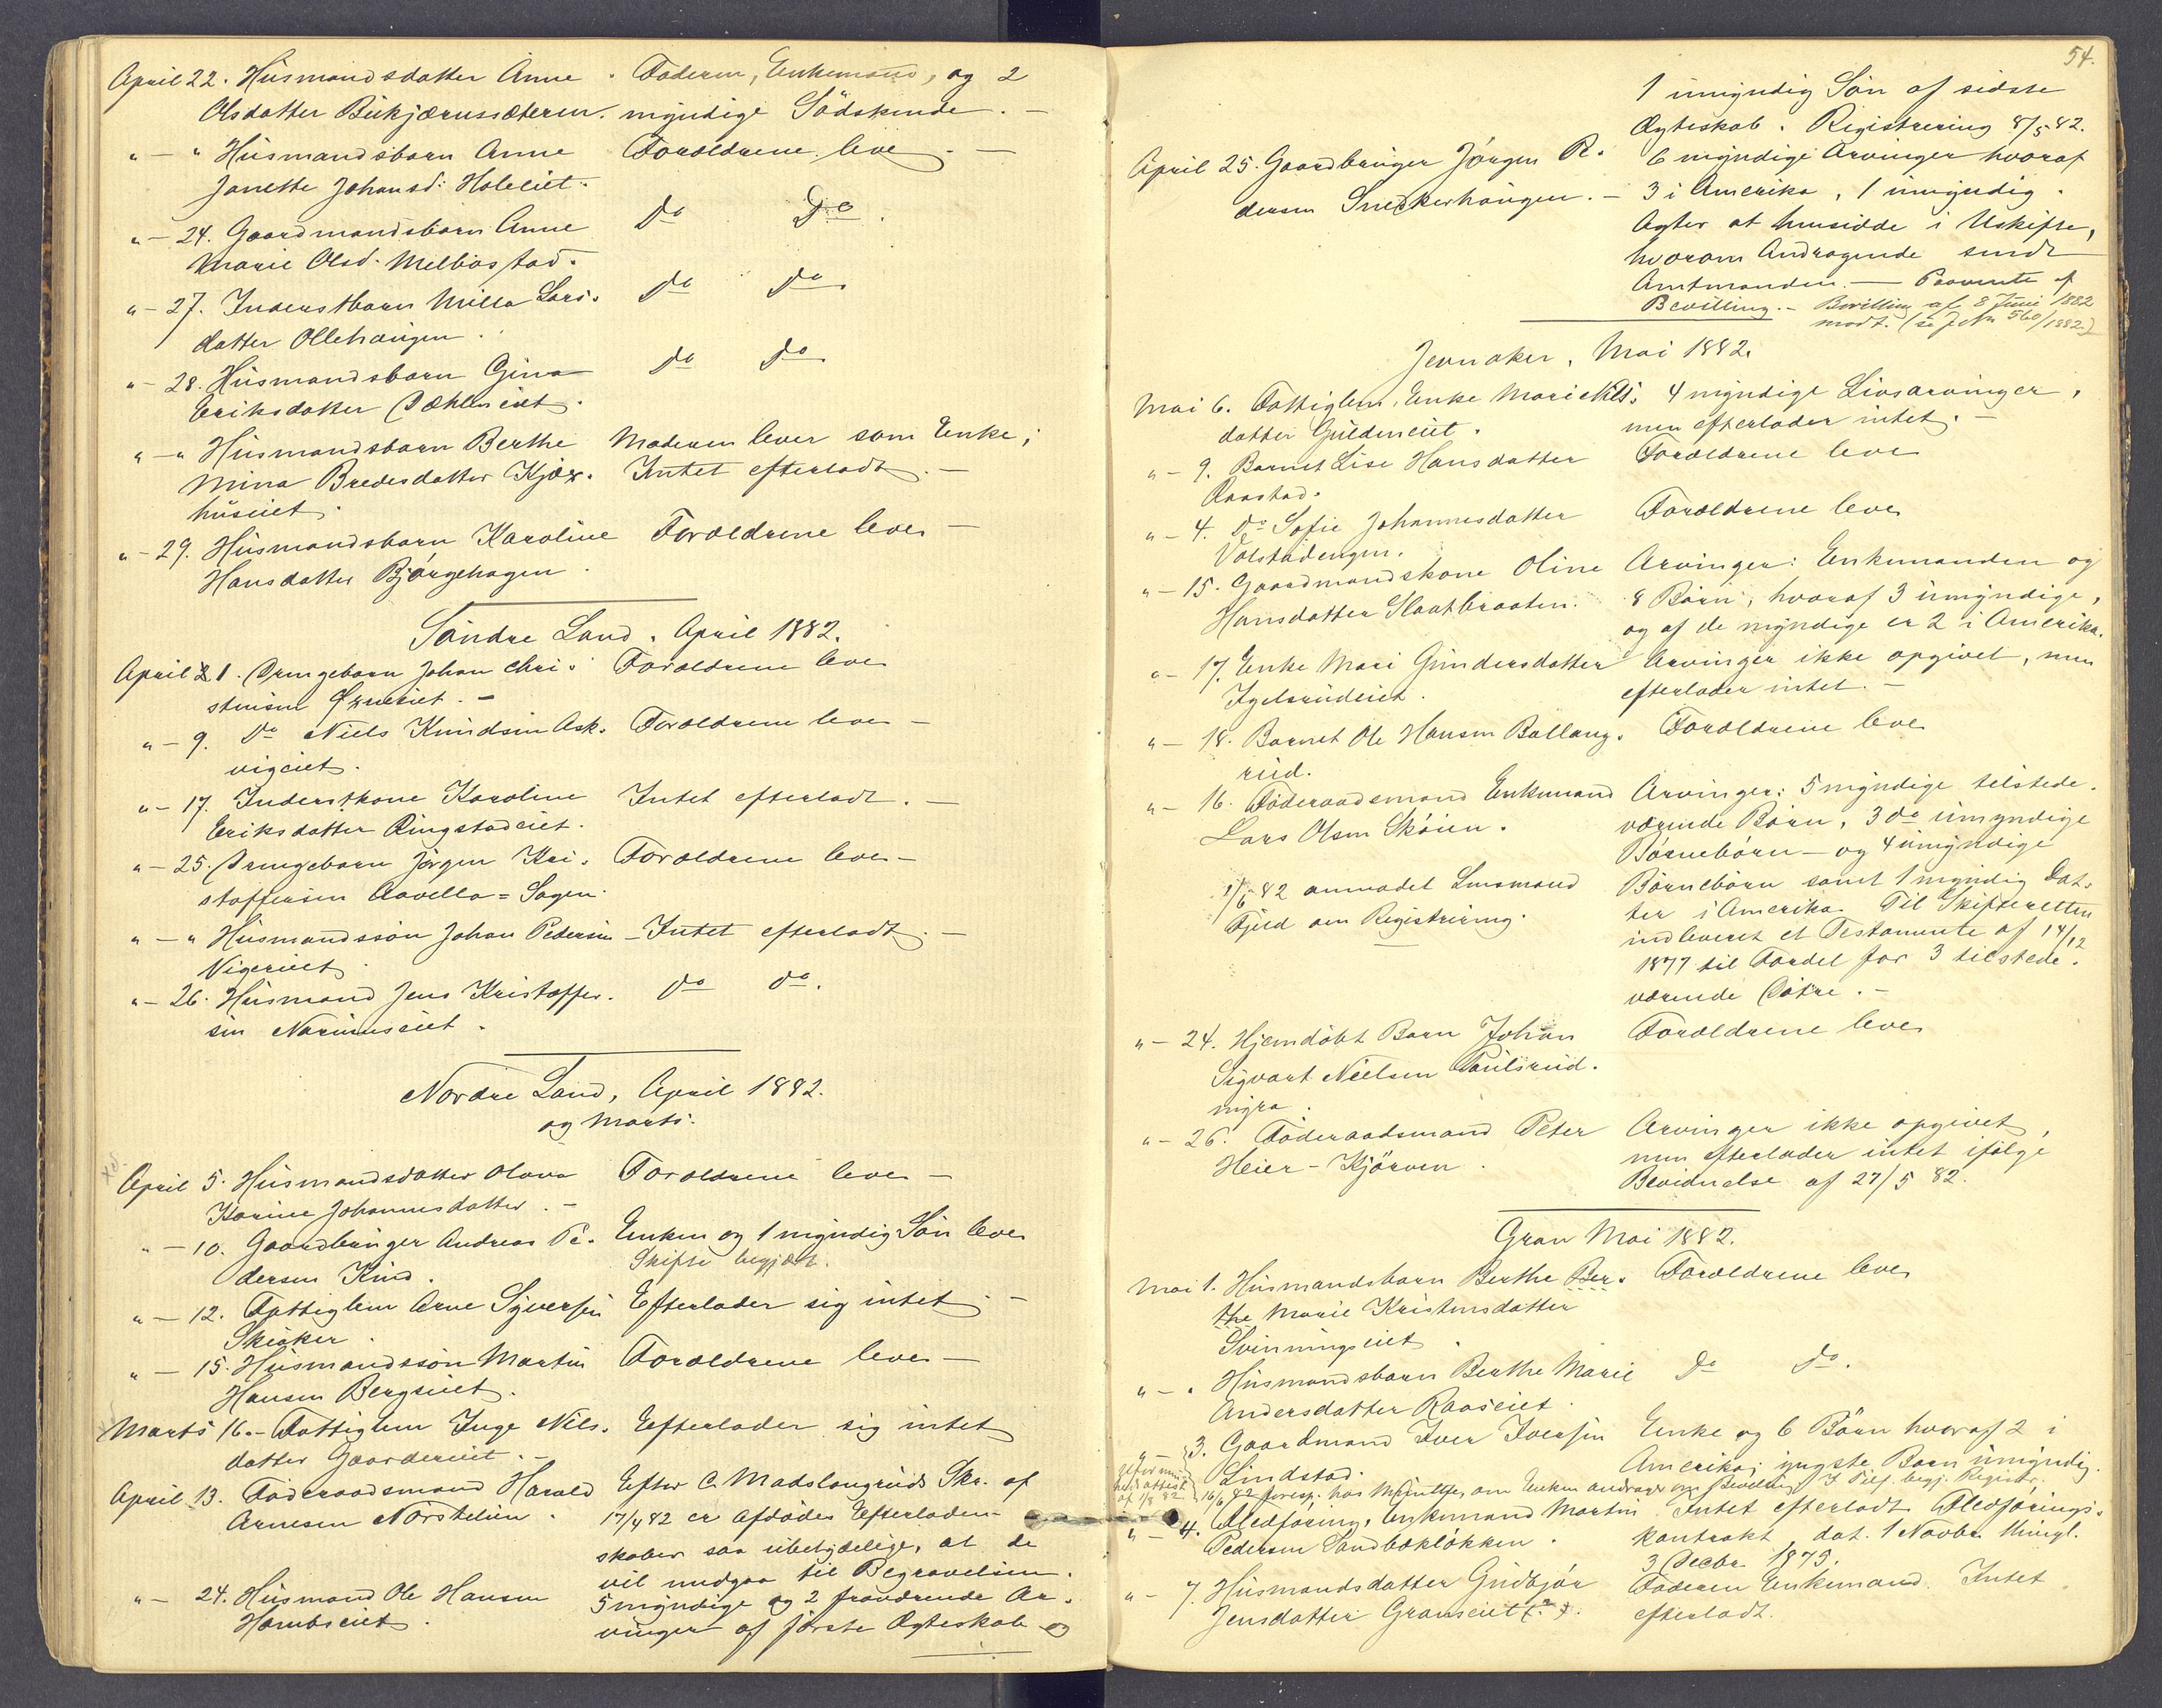 April 22. Husmandsdatter Anne Faderen, Enkemand, og 2
Olsdatter Birkjærnssæteren. myndige Södskende. —
" — " Husmandsbarn Anne Forældrene leve —
Janette Johansd: Holeiet.
" — 24. Gaardmandsbarn Anne Do Do.
Marie Olsd. Melbostad.
" — 27. Inderstbarn Milla Lars- Do Do
datter Ollehaugen.
" — 28. Husmandsbarn Gina Do Do
Eriksdatter Dæhleneiet.
" — " Husmandsbarn Berthe Moderen lever som Enke;
Mina Bredesdatter Kjær- Intet efterladt. —
huseiet.
" — 29. Husmandsbarn Karoline Forældrene leve —
Hansdatter Bjørgehagen.
Söndre Land. April 1882.
April 1. Drengebarn Johan Chri- Forældrene leve
stensen —
" — 9. Do Niels Knudsen Ask- Forældrene leve —
vigeiet.
" — 17. Inderstkone Karoline Intet efterladt. —
Eriksdatter Ringstadeiet.
" — 25. Drengebarn Jörgen Kri- Forældrene leve —
stoffersen Aavella=Sagen.
" — " Husmandssön Johan Pedersen — Intet efterladt. —
Vigereiet.
" — 26. Husmand Jens Kristoffer- Do Do.
sen
Nordre Land, April 1882.
og Marts.
April 5. Husmandsdatter Olava Forældrene leve —
Karine Johannesdatter. —
" — 10. Gaardbruger Andreas Pe- Enken og 1 myndig Sön leve
dersen Kind. Skifte begjært.
" — 12. Fattiglem Arne Syversen Efterlader sig intet —
Skiaker.
" — 15. Husmandssön Martin Forældrene leve —
Hansen Bergseiet.
Marts 16. — Fattiglem Inge Nils- Efterlader sig intet
datter Gaardereiet. —
April 13. Föderaadsmand Harald Efter C. Madslangruds Skr. af
Arnesen Nörstelien. 17/4 82 er Afdödes Efterladen-
skaber saa ubetydelige, at de
vil medgaa til Begravelsen.
" — 24. Husmand Ole Hansen 5 myndige og 2 fraværende Ar-
eiet. vinger af første Ægteskab og
54.
1 umyndig Sön af sidste
Ægteskab. Registrering 8/5 82.
April 25. Gaardbruger Jörgen Pe- 6 myndige Arvinger hvoraf
dersen Sneckerhaugen. — 3 i Amerika, 1 umyndig.
Agter at hensidde i Uskifte,
hvorom Andragende sendt
Amtmanden. — Paavente af
Bevilling. — Bevilling af 8 Juni 1882
modt. (se J. No 560/1882)
Jevnaker, Mai 1882.
Mai 6. Fattiglem, Enke Mari Nils- 4 myndige Livsarvinger,
datter Guldeneiet. men efterlader intet. —
" — 9. Barnet Lise Hansdatter Forældrene leve
Raastad.
" — 4. Do Sofie Johannesdatter Forældrene leve
Volstadengen.
" — 15. Gaardmandskone Oline Arvinger: Enkemanden og
Hansdatter Slaatbraaten. 8 Börn, hvoraf 3 umyndige,
og af de myndige er 2 i Amerika.
" — 17. Enke Mari Gundersdatter Arvinger ikke opgivet, men
Igelsrudeiet. efterlader intet. —
" — 18. Barnet Ole Hansen Ballang- Forældrene leve
rud.
" — 16. Föderaadsmand Enkemand Arvinger: 5 myndige tilstede-
Lars Olsen Sköien. værende Börn, 3 do umyndige
Börnebörn — og 4 umyndige
1/6 82 anmodet Lensmand Börnebörn samt 1 myndig Dat-
Fjeld om Registrering. ter i Amerika. Til Skifteretten
indleveret et Testamente af 14/12
1877 til Fordel for 3 tilstede-
værende Döttre. —
" — 24. Hjemdöbt Barn Johan Forældrene leve
Sigvart Nielsen Paulsrud-
nigra.
" — 26. Föderaadsmand Peter Arvinger ikke opgivet,
Heier — Kjörven. men efterlader intet ifölge
Bevidnelse af 27/5 82.
Gran Mai 1882.
Mai 1. Husmandsbarn Berthe Ber- Forældrene leve
the Marie Kristensdatter
Svinningseiet.
" — " Husmandsbarn Berthe Marie Do Do.
Andersdatter Raaseiet.
" — 3. Gaardmand Iver Iversen Enke og 6 Börn hvoraf 2 i
Lindstad. Amerika; yngste Barn umyndig.
16/6 82 foresp. hos om Enken andrager om Bevilling. I Tilf. begj. Registr.
" — 4. Fledföring, Enkemand Martin Intet efterladt Fledförings-
Pedersen Sandbæklökken. kontrakt dat. 1 Novbr. thingl.
3 Decbr 1879.
" — 7. Husmandsdatter Gudbjör Faderen Enkemand. Intet
Jensdatter Granseiet (?). efterladt.